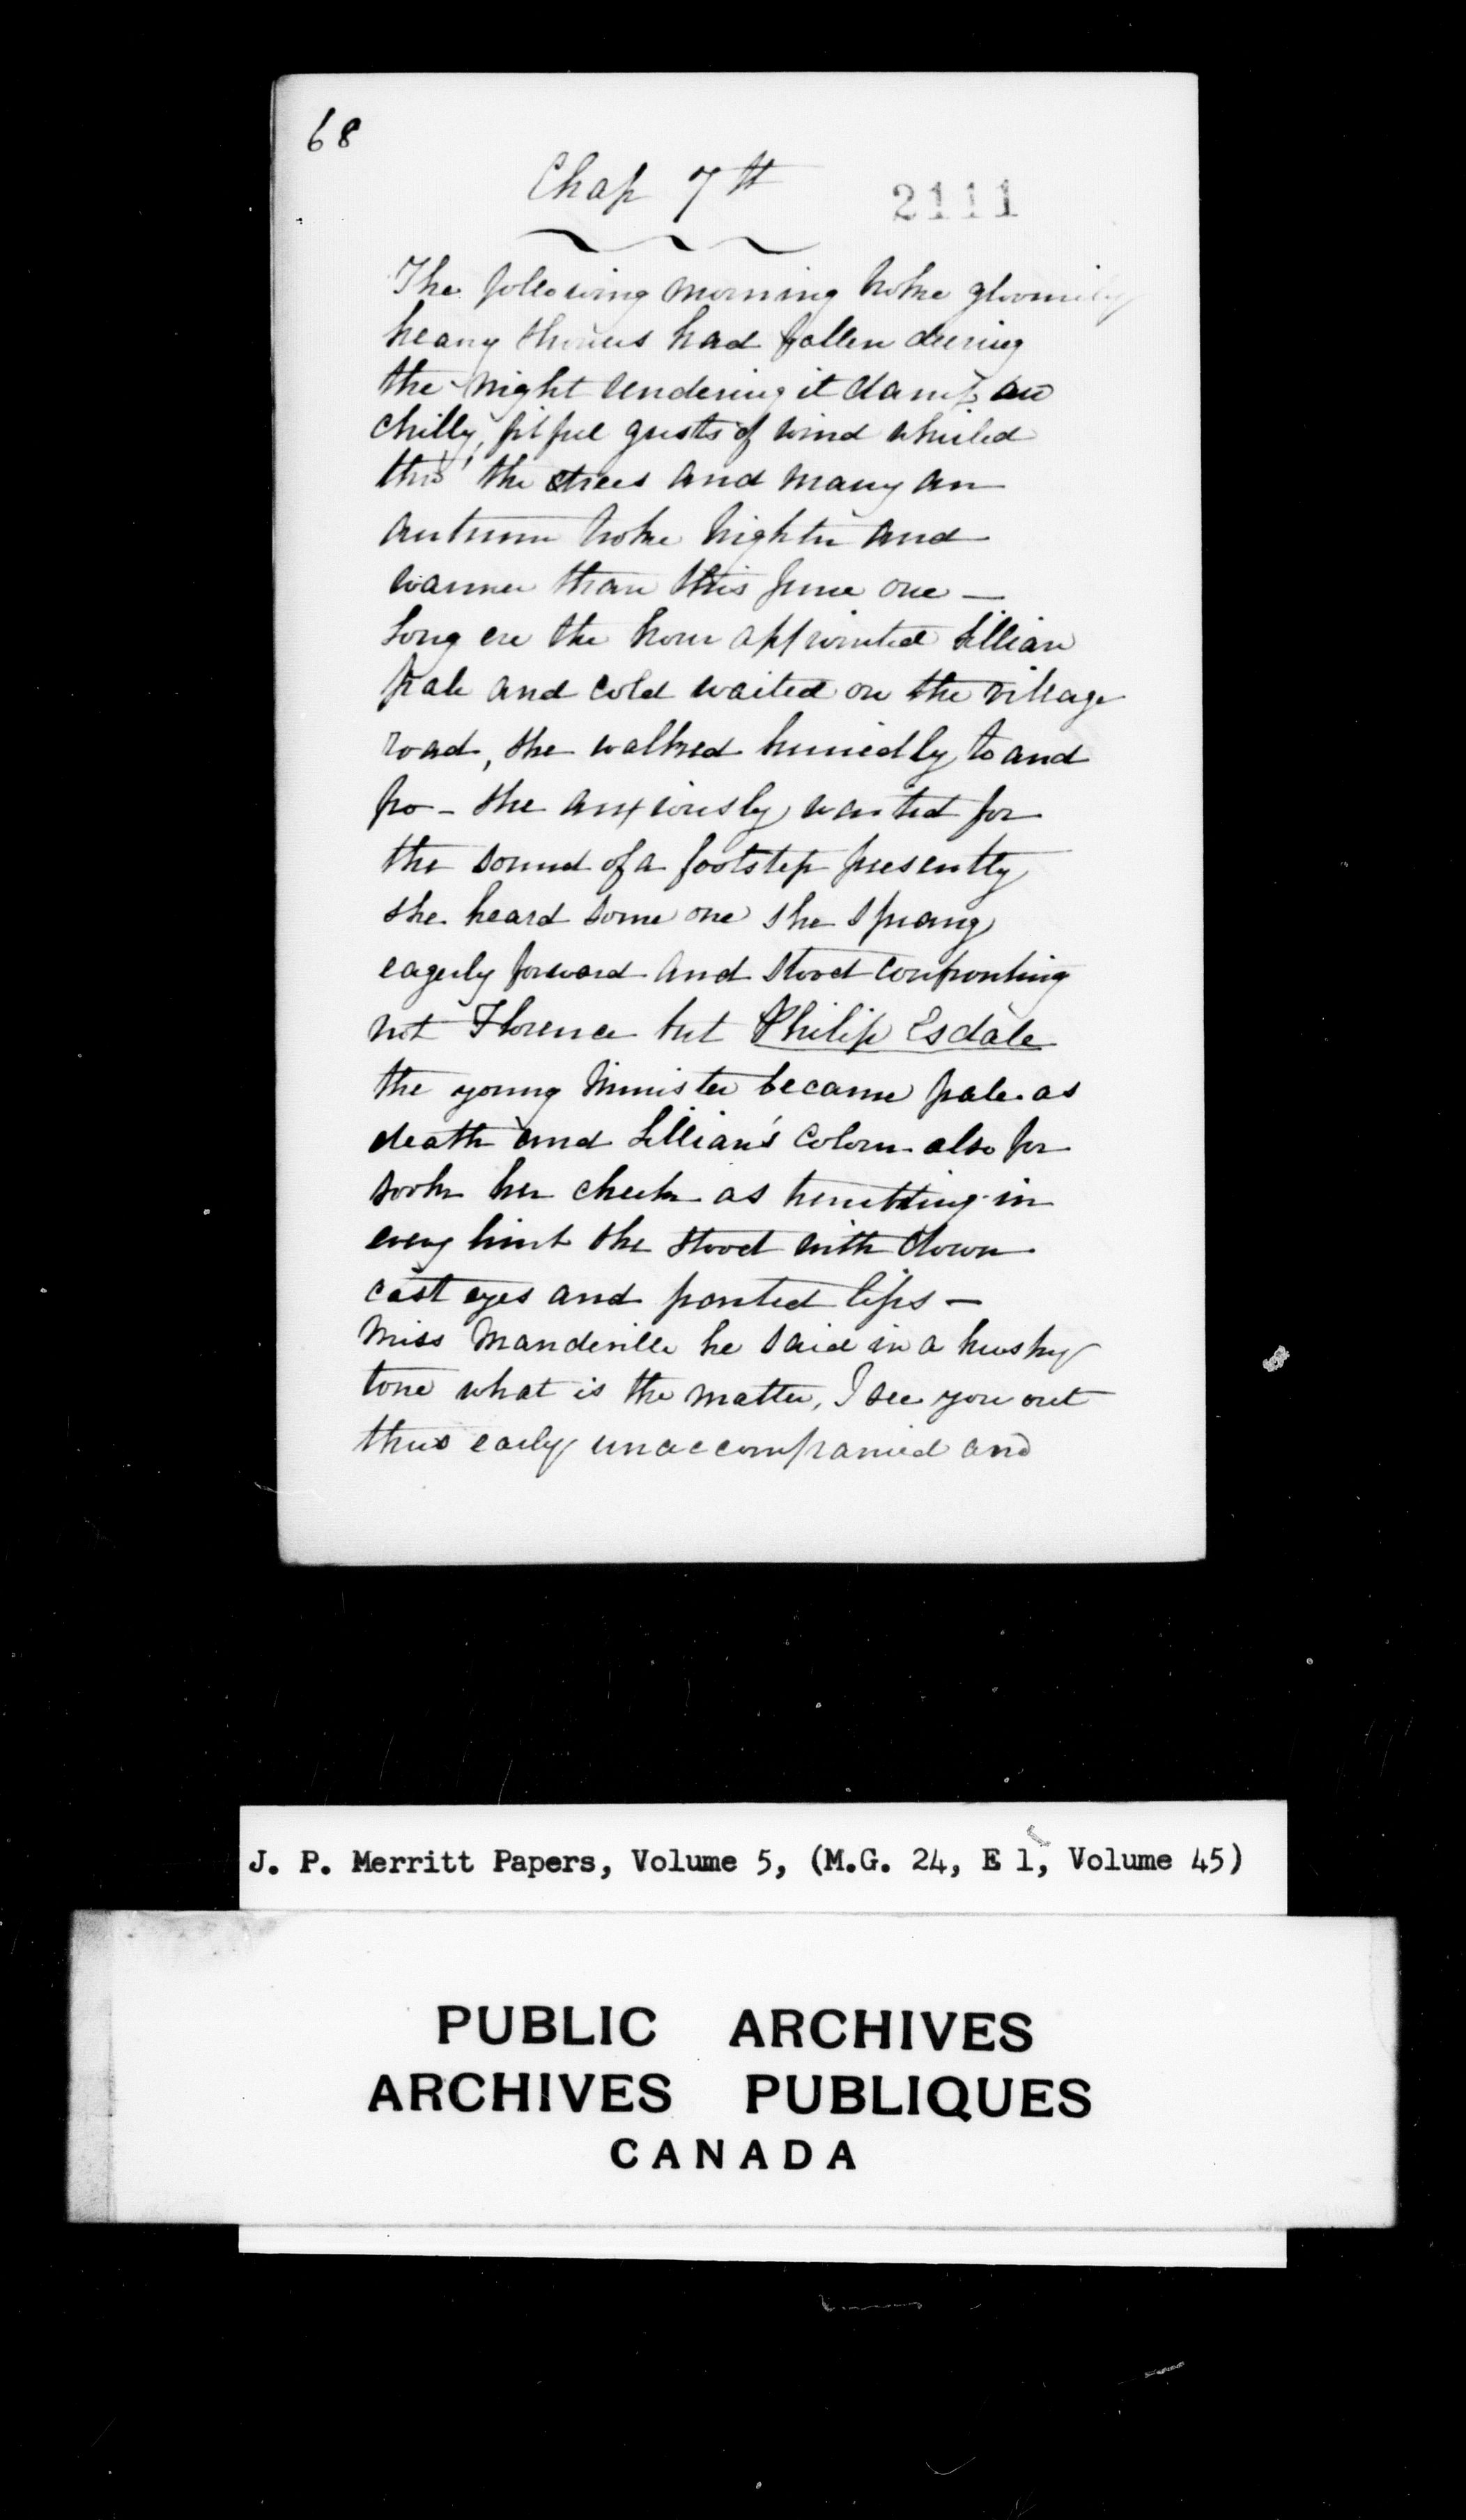 68
Chap 7th
2111
The following morning broke gloomily
heavy showers had fallen during
the night rendering it damp and
chilly, fitful gusts of wind whirled
thro' the trees and many an
autumn broke brighter and
warmer than this June one —
Long ere the hour appointed Lillian
pale and cold waited on the village
road, she walked hurriedly to and
fro - she anxiously waited for
the sound of a footstep presently
she heard some one she sprang
eagerly forward and stood confronting
not Florence but Philip Esdale
the young minister became pale as
death and Lillian's colour also for
sook her cheek as trembling in
every limb she stood with down
cast eyes and parted lips —
Miss Mandeville he said in a husky
tone what is the matter, I see you out
thus early unaccompanied and
J. P. Merritt Papers, Volume 5, (M.G. 24, E 1, Volume 45)
PUBLIC ARCHIVES
ARCHIVES PUBLIQUES
CANADA